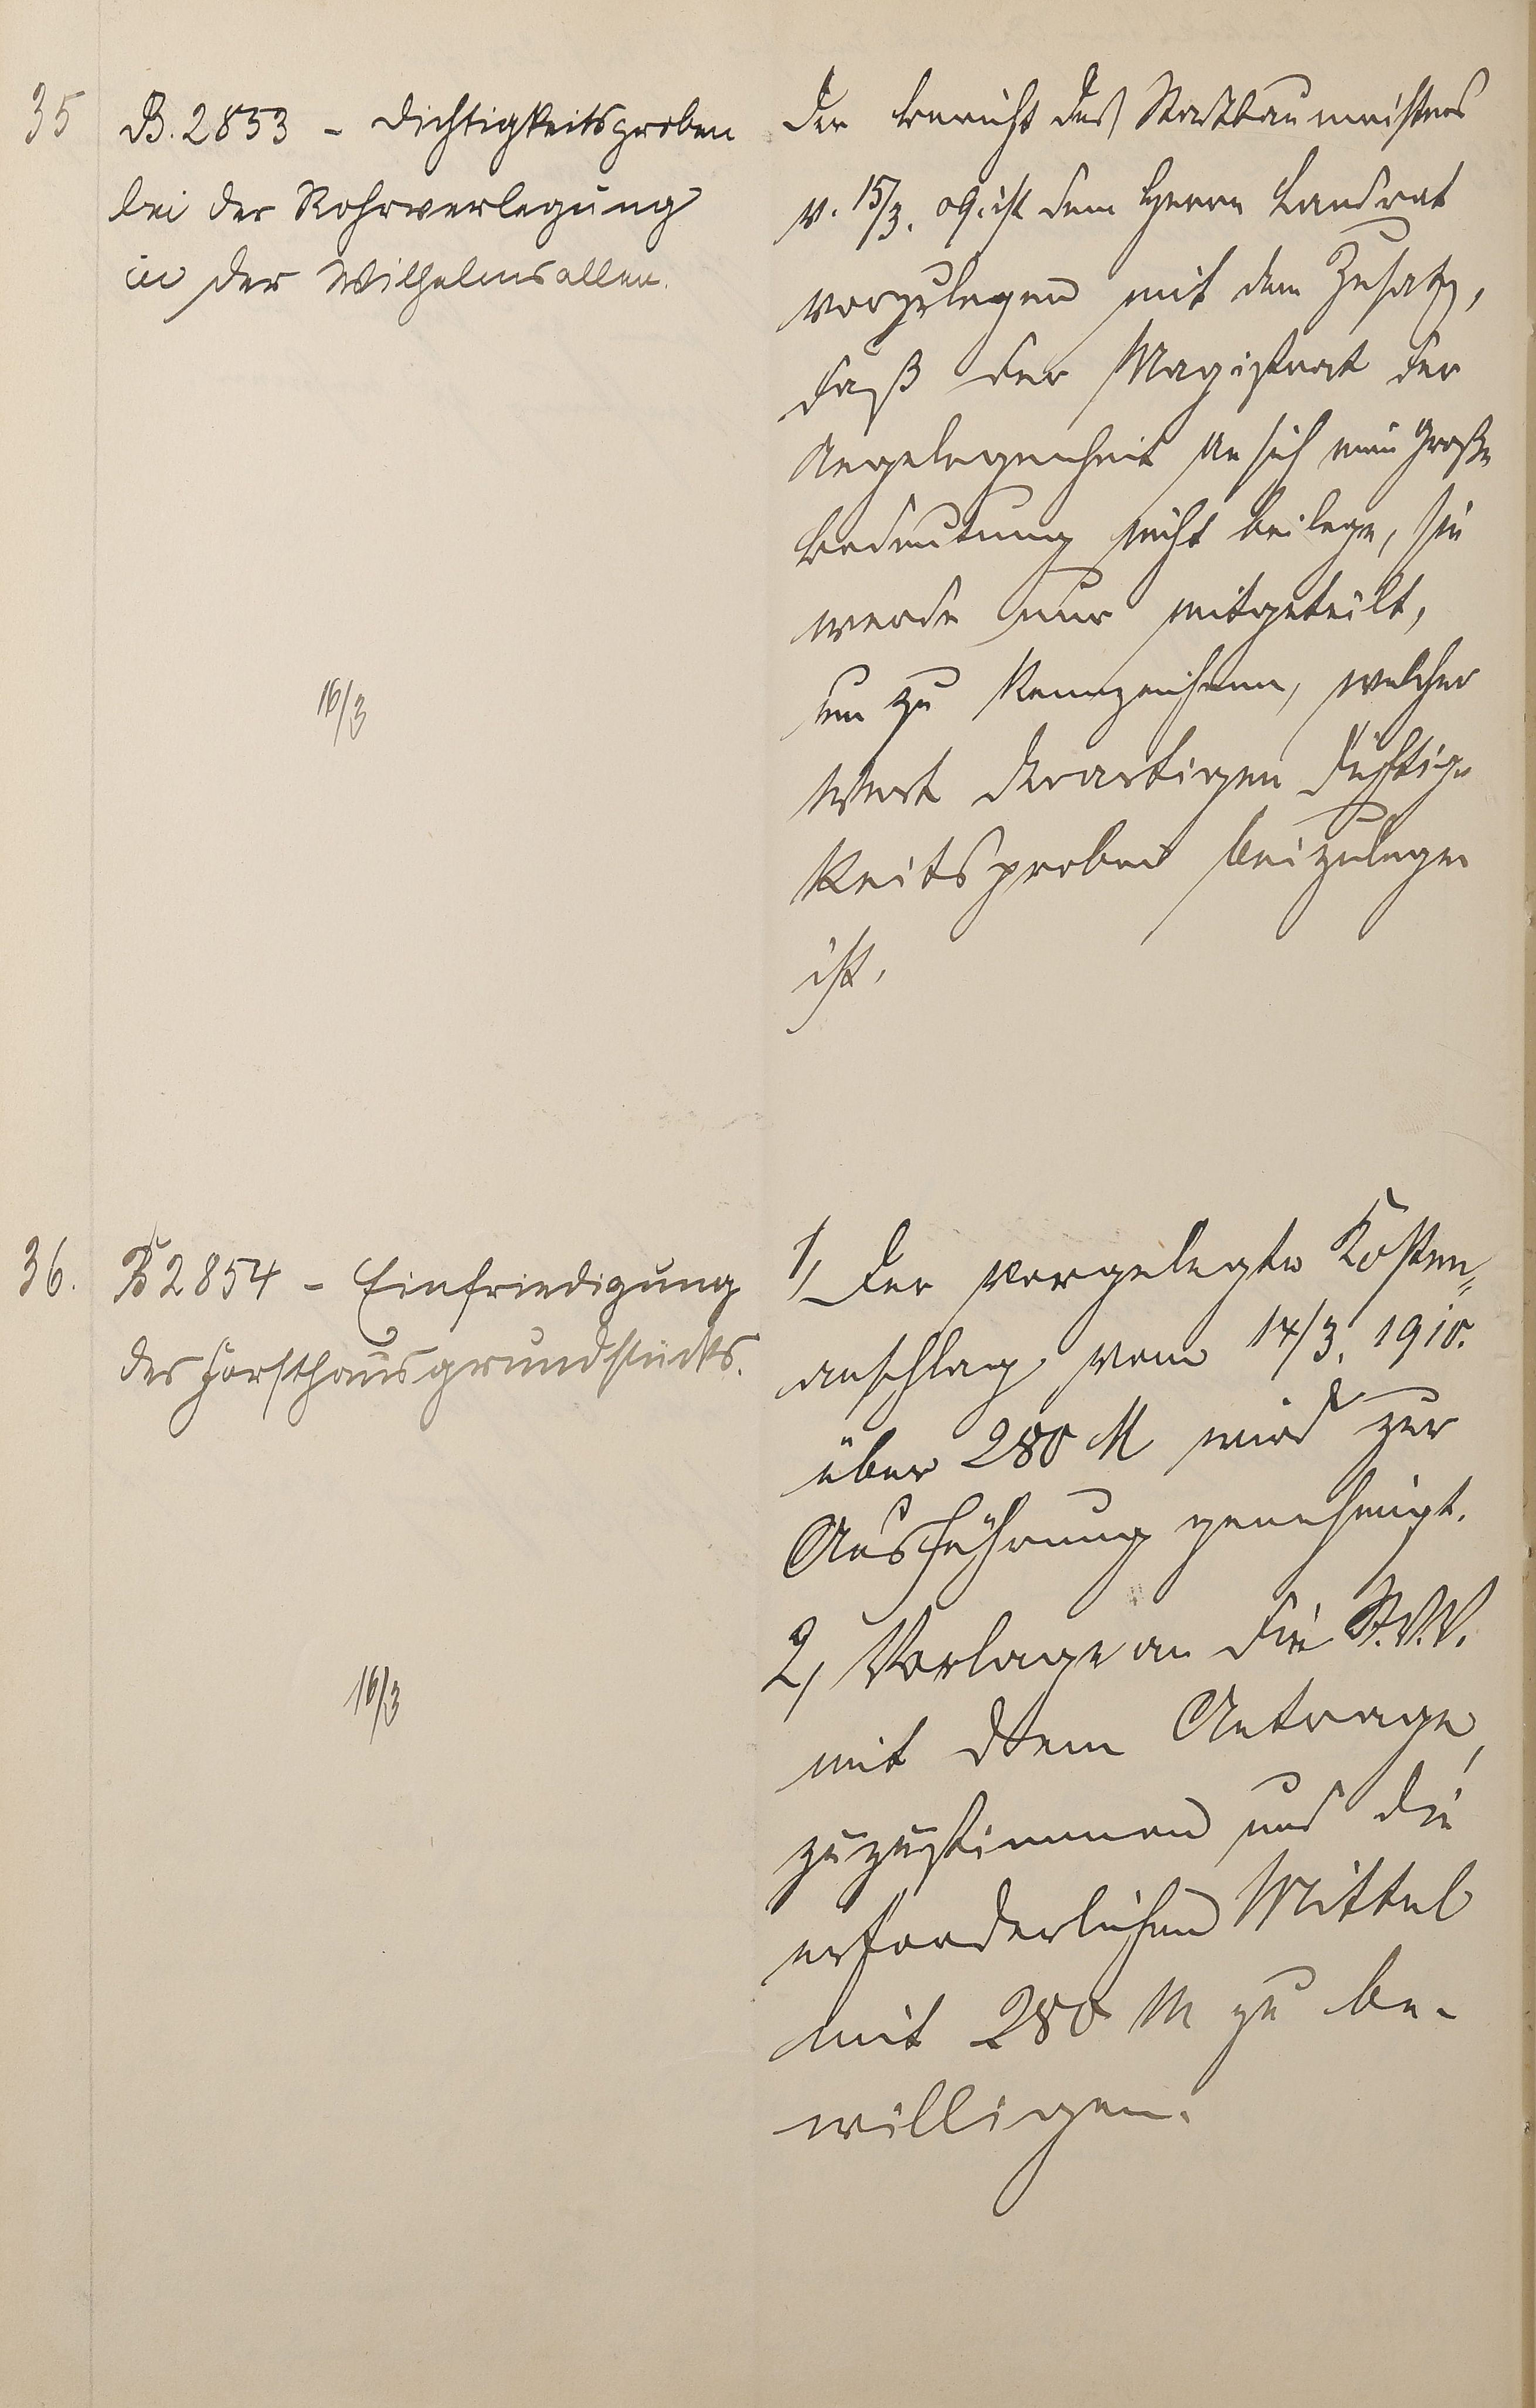 35
B. 2853 - Dichtigkeitsproben
bei der Rohrverlegung
in der Wilhelmsallee.
Der Bericht des Stadtbaumeisters
v. 15/3. 09. ist dem Herrn Landrat
vorzulegen mit dem Zusatz,
daß der Magistrat der
Angelegenheit an sich eine große
Bedeutung nicht beilege, sie
werde nur mitgeteilt,
um zu kennzeichnen, welcher
Wert derartigen Dichtig-
keitsproben beizulegen
ist.
16/3
36.
B 2854 - Einfriedigung
des Forsthausgrundstücks.
1, Der vorgelegte Kosten-
anschlag vom 14/3. 1910.
über 280 M wird zur
Ausführung genehmigt.
2, Vorlage an die St.V.V.
mit dem Antrage,
zuzustimmen und die
erforderlichen Mittel
mit 280 M zu be-
willigen.
16/3